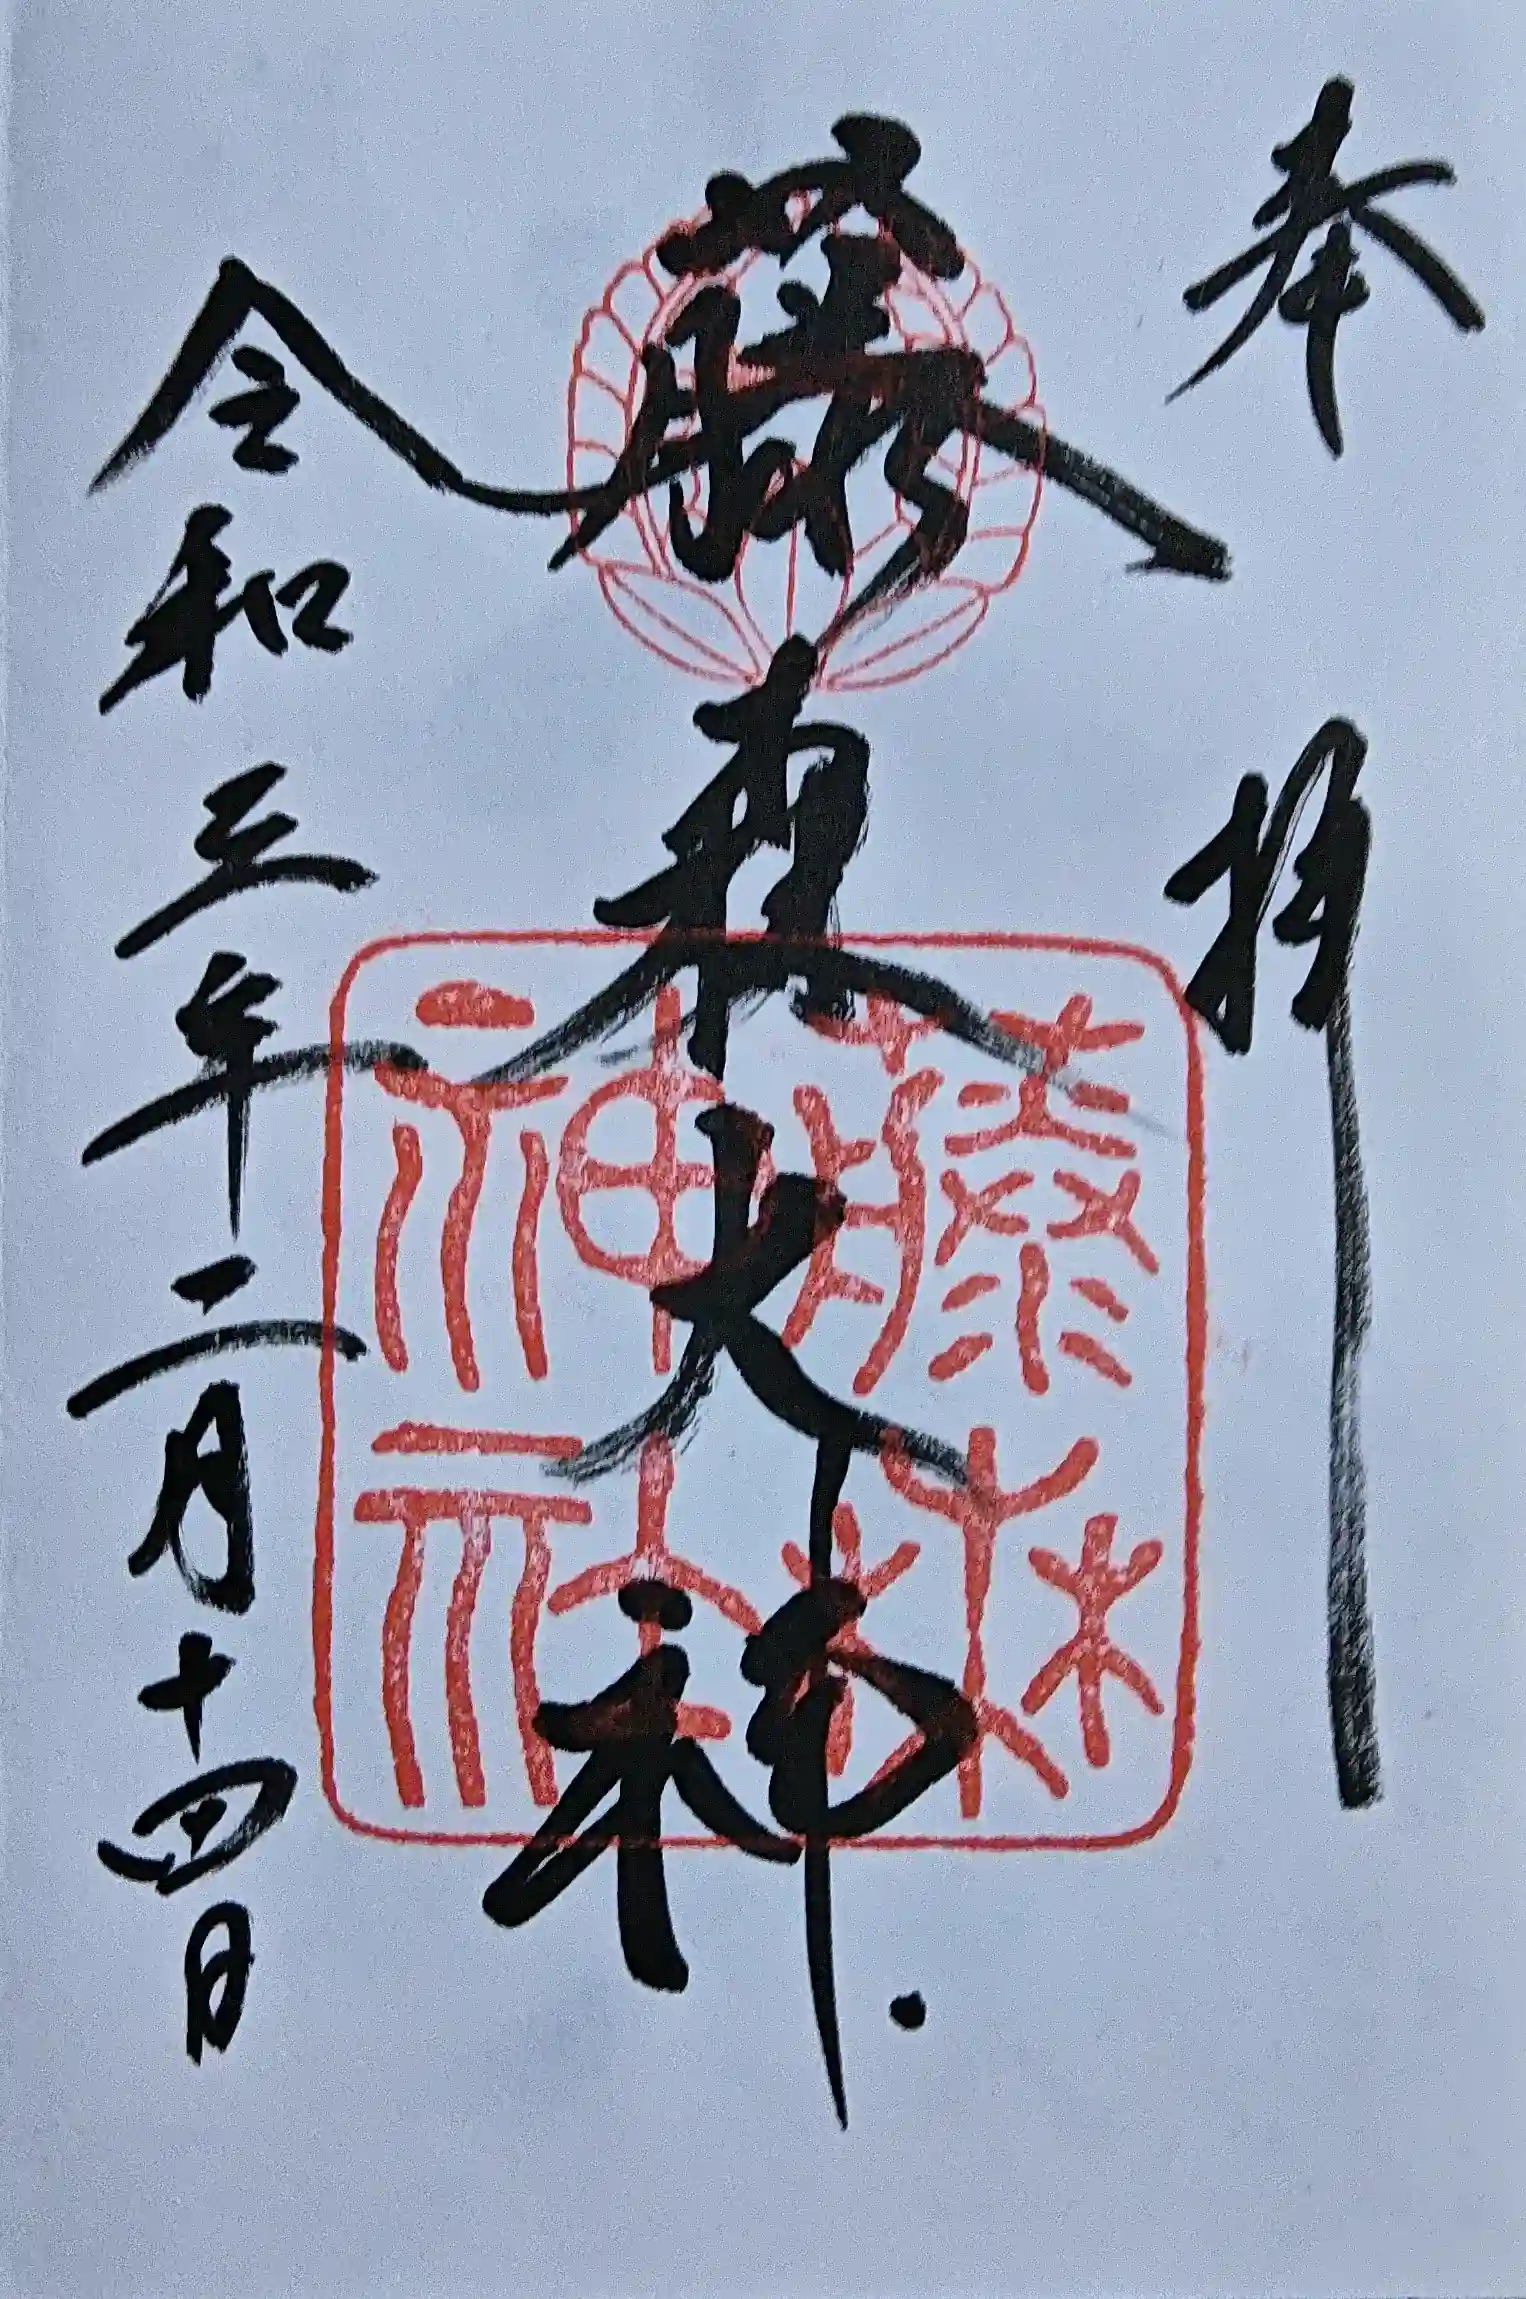 奉拝
藤森大神
令和三年二月十四日
藤森神社